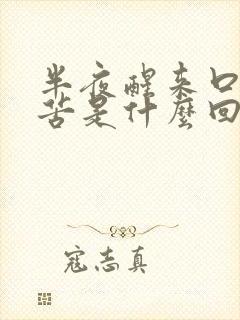 半夜醒来口
苦是什麼回
寇志真